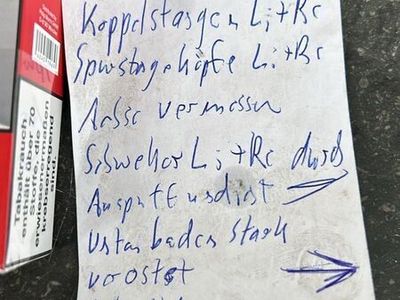 Koppelstangen Li+Re
Spurstangeköpfe Li+Re
Achse vermessen
Schweller Li+Re durch
Auspuff undicht
Unterboden stark
verostet
Tabakrauch
über 70
die
krebserregend
sind